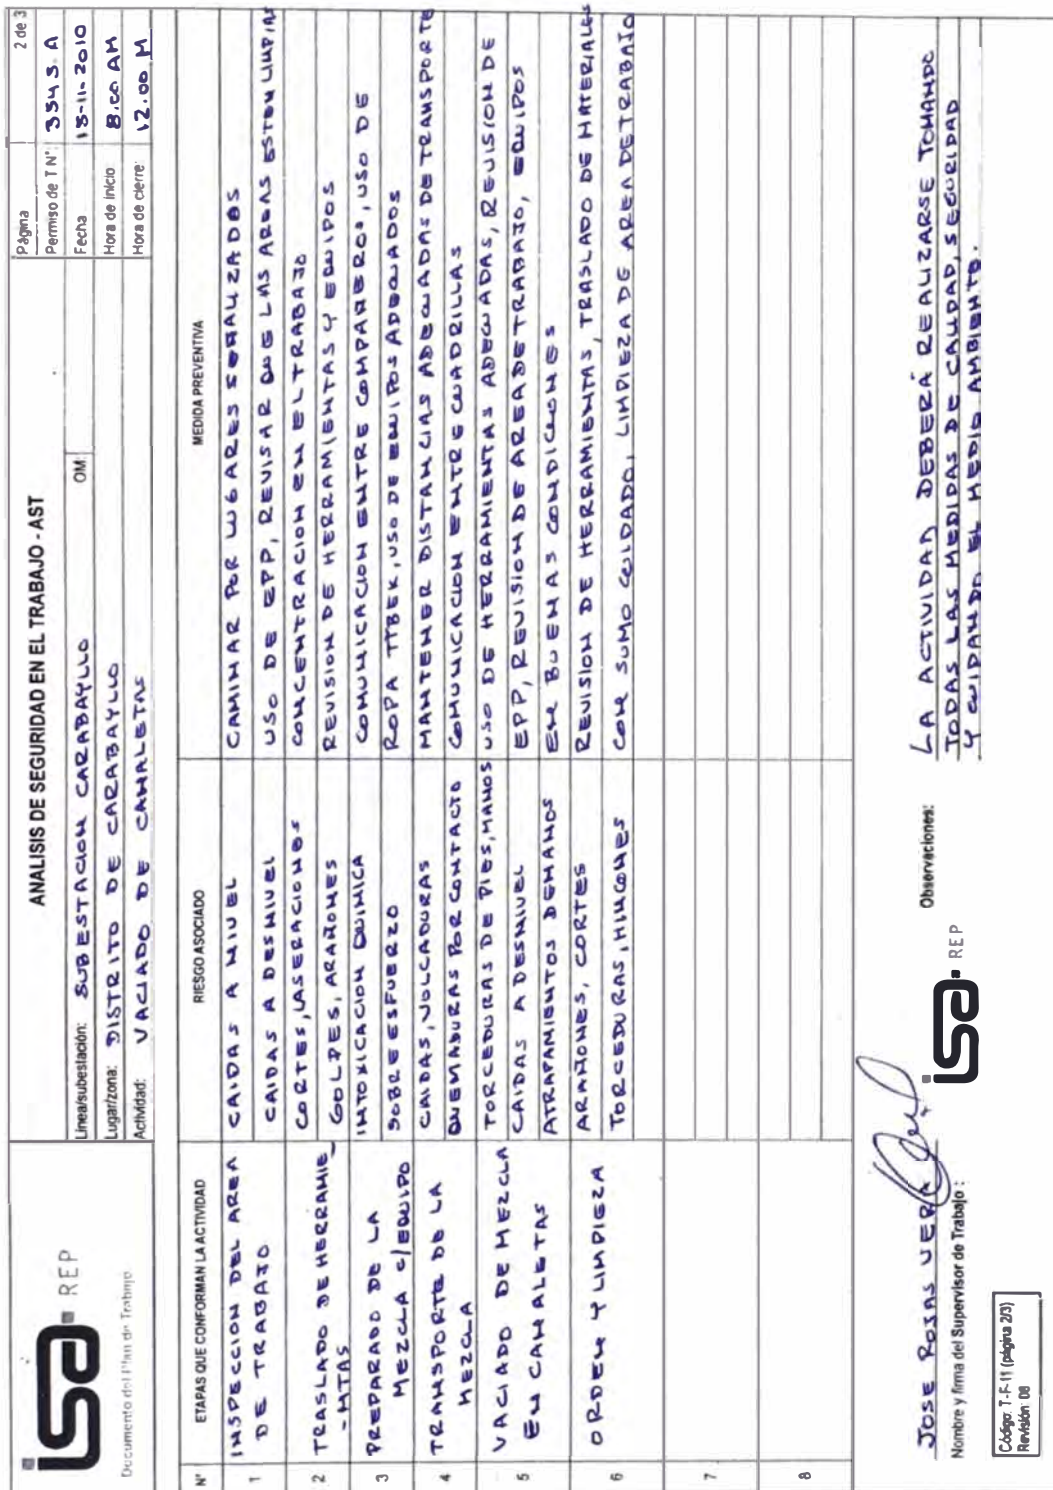 isa REP
Documento del Plan de Trabajo
ANALISIS DE SEGURIDAD EN EL TRABAJO - AST
Línea/subestación: SUBESTACION CARABAYLLO OM:
Lugar/zona: DISTRITO DE CARABAYLLO
Actividad: VACIADO DE CANALETAS
Página 2 de 3
Permiso de T N°: 3545. A
Fecha 15-11-2010
Hora de inicio: 8.00 AM
Hora de cierre: 12.00 M
N° ETAPAS QUE CONFORMAN LA ACTIVIDAD RIESGO ASOCIADO MEDIDA PREVENTIVA
1 INSPECCION DEL AREA CAIDAS A NIVEL CAMINAR POR LUGARES SEÑALIZADOS
DE TRABAJO CAIDAS A DESNIVEL USO DE EPP, REVISAR QUE LAS AREAS ESTEN LIMPIAS
2 TRASLADO DE HERRAMIE_ CORTES, LASERACIONES CONCENTRACION EN EL TRABAJO
-NTAS GOLPES, ARAÑONES REVISION DE HERRAMIENTAS Y EQUIPOS
3 PREPARADO DE LA INTOXICACION QUIMICA COMUNICACION ENTRE COMPAÑEROS, USO DE
MEZCLA C/EQUIPO SOBREESFUERZO ROPA TYBEK, USO DE EQUIPOS ADECUADOS
4 TRANSPORTE DE LA CAIDAS, VOLCADURAS MANTENER DISTANCIAS ADECUADAS DE TRANSPORTE
MEZCLA QUEMADURAS POR CONTACTO COMUNICACION ENTRE CUADRILLAS
5 VACIADO DE MEZCLA TORCEDURAS DE PIES, MANOS USO DE HERRAMIENTAS ADECUADAS, REVISION DE
EN CANALETAS CAIDAS A DESNIVEL EPP, REVISION DE AREA DE TRABAJO, EQUIPOS
ATRAPAMIENTOS DE MANOS EN BUENAS CONDICIONES
6 ORDEN Y LIMPIEZA ARAÑONES, CORTES REVISION DE HERRAMIENTAS, TRASLADO DE MATERIALES
TORCEDURAS, HINCONES CON SUMO CUIDADO, LIMPIEZA DE AREA DE TRABAJO
7
8
JOSE ROJAS VERA
Nombre y firma del Supervisor de Trabajo :
isa REP
Observaciones: LA ACTIVIDAD DEBERÁ REALIZARSE TOMANDO
TODAS LAS MEDIDAS DE CALIDAD, SEGURIDAD
Y CUIDANDO EL MEDIO AMBIENTE.
Código: T-F-11 (página 2/3)
Revisión: 08